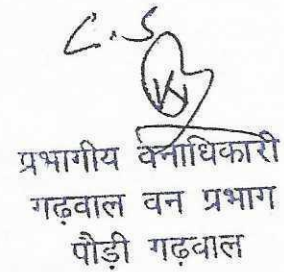 C.S
प्रभागीय वनाधिकारी
गढ़वाल वन प्रभाग
पौड़ी गढ़वाल